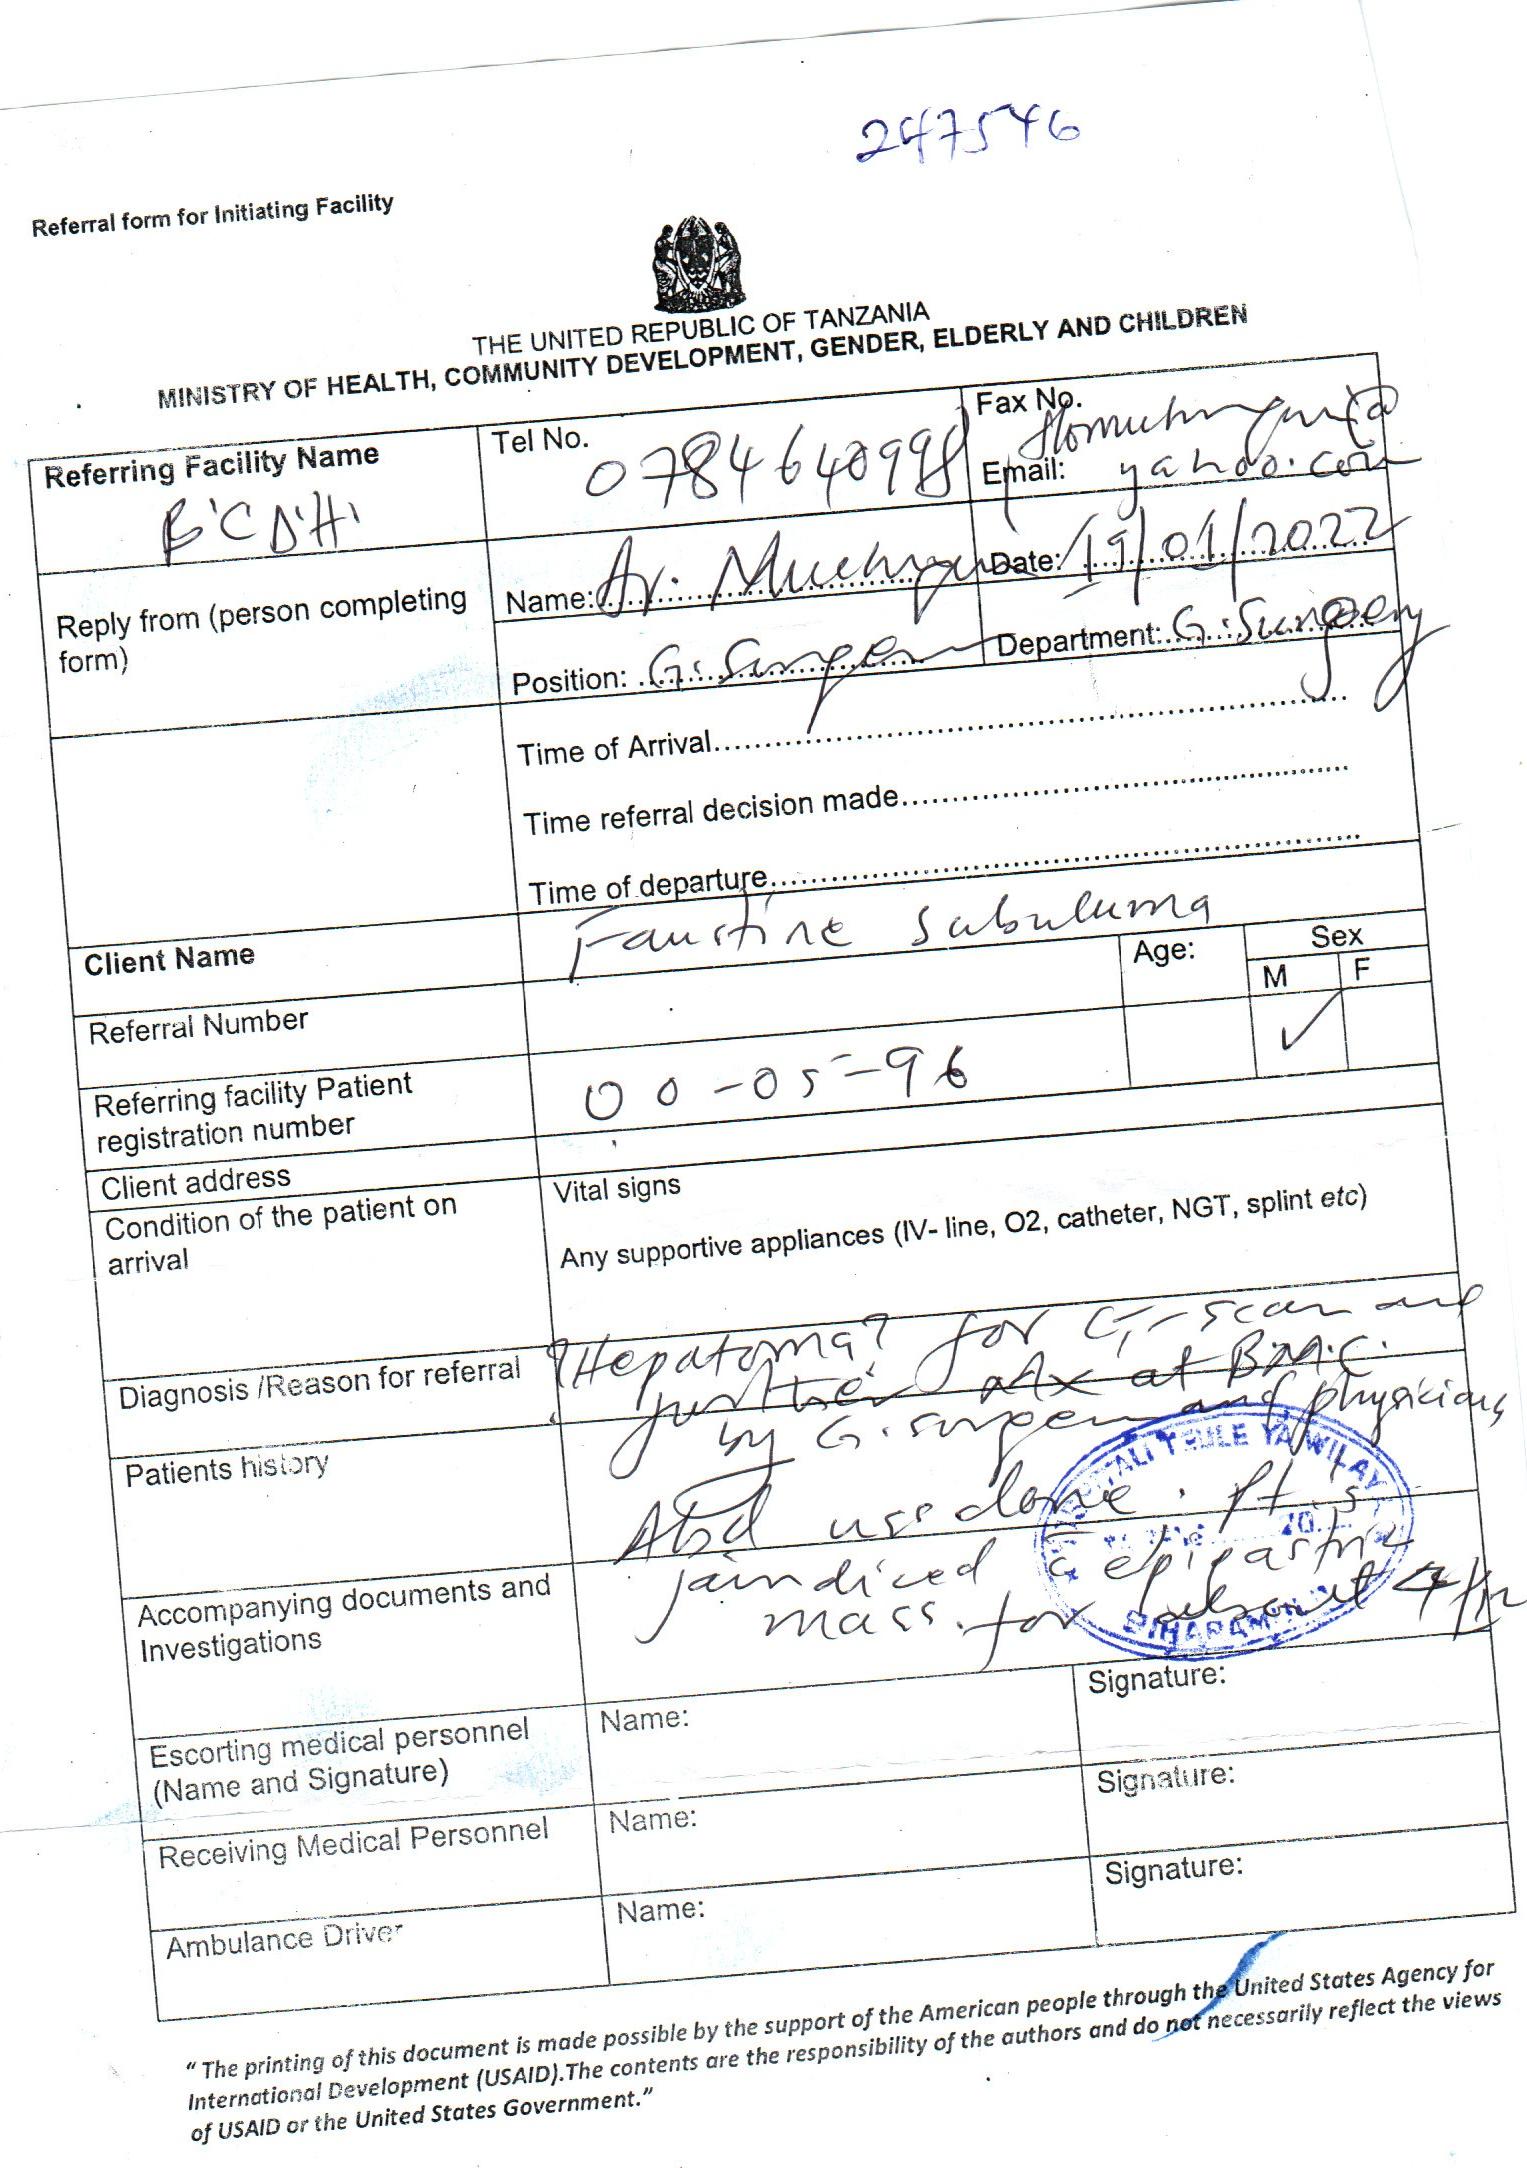 247546
Referral form for Initiating Facility
THE UNITED REPUBLIC OF TANZANIA
MINISTRY OF HEALTH, COMMUNITY DEVELOPMENT, GENDER, ELDERLY AND CHILDREN
Referring Facility Name
B'C D'H'
Tel No.
0784640998
Fax No.
Email: yahoo.com
Reply from (person completing form)
Name: Dr.
Date: 19/01/2022
Position: G. Surgeon
Department: G. Surgery
Time of Arrival
Time referral decision made
Time of departure
Client Name
Faustine Sabuluma
Age:
Sex
M F
✓
Referral Number
Referring facility Patient
registration number
00-05-96
Client address
Condition of the patient on
arrival
Vital signs
Any supportive appliances (IV- line, O2, catheter, NGT, splint etc)
Diagnosis /Reason for referral
?Hepatoma? for CT-scan and
further Mx at BMC.
by G. surgeon and physicians
Patients history
Abd uss done. Pt is
jaindiced c̄ epigastric
mass. for about 4/12
HOSPITALI TEULE YA WILAYA
20
BIHARAMULO
Accompanying documents and
Investigations
Escorting medical personnel
(Name and Signature)
Name:
Signature:
Receiving Medical Personnel
Name:
Signature:
Ambulance Driver
Name:
Signature:
“ The printing of this document is made possible by the support of the American people through the United States Agency for
International Development (USAID).The contents are the responsibility of the authors and do not necessarily reflect the views
of USAID or the United States Government.”